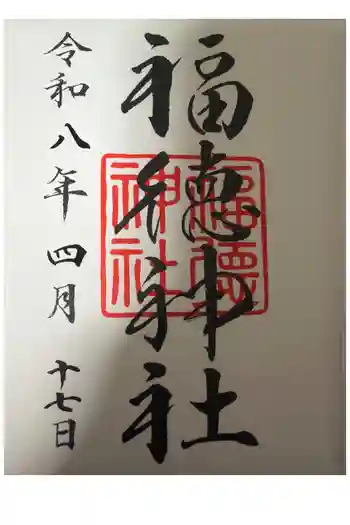 福徳神社
福徳神社
令和八年四月十七日